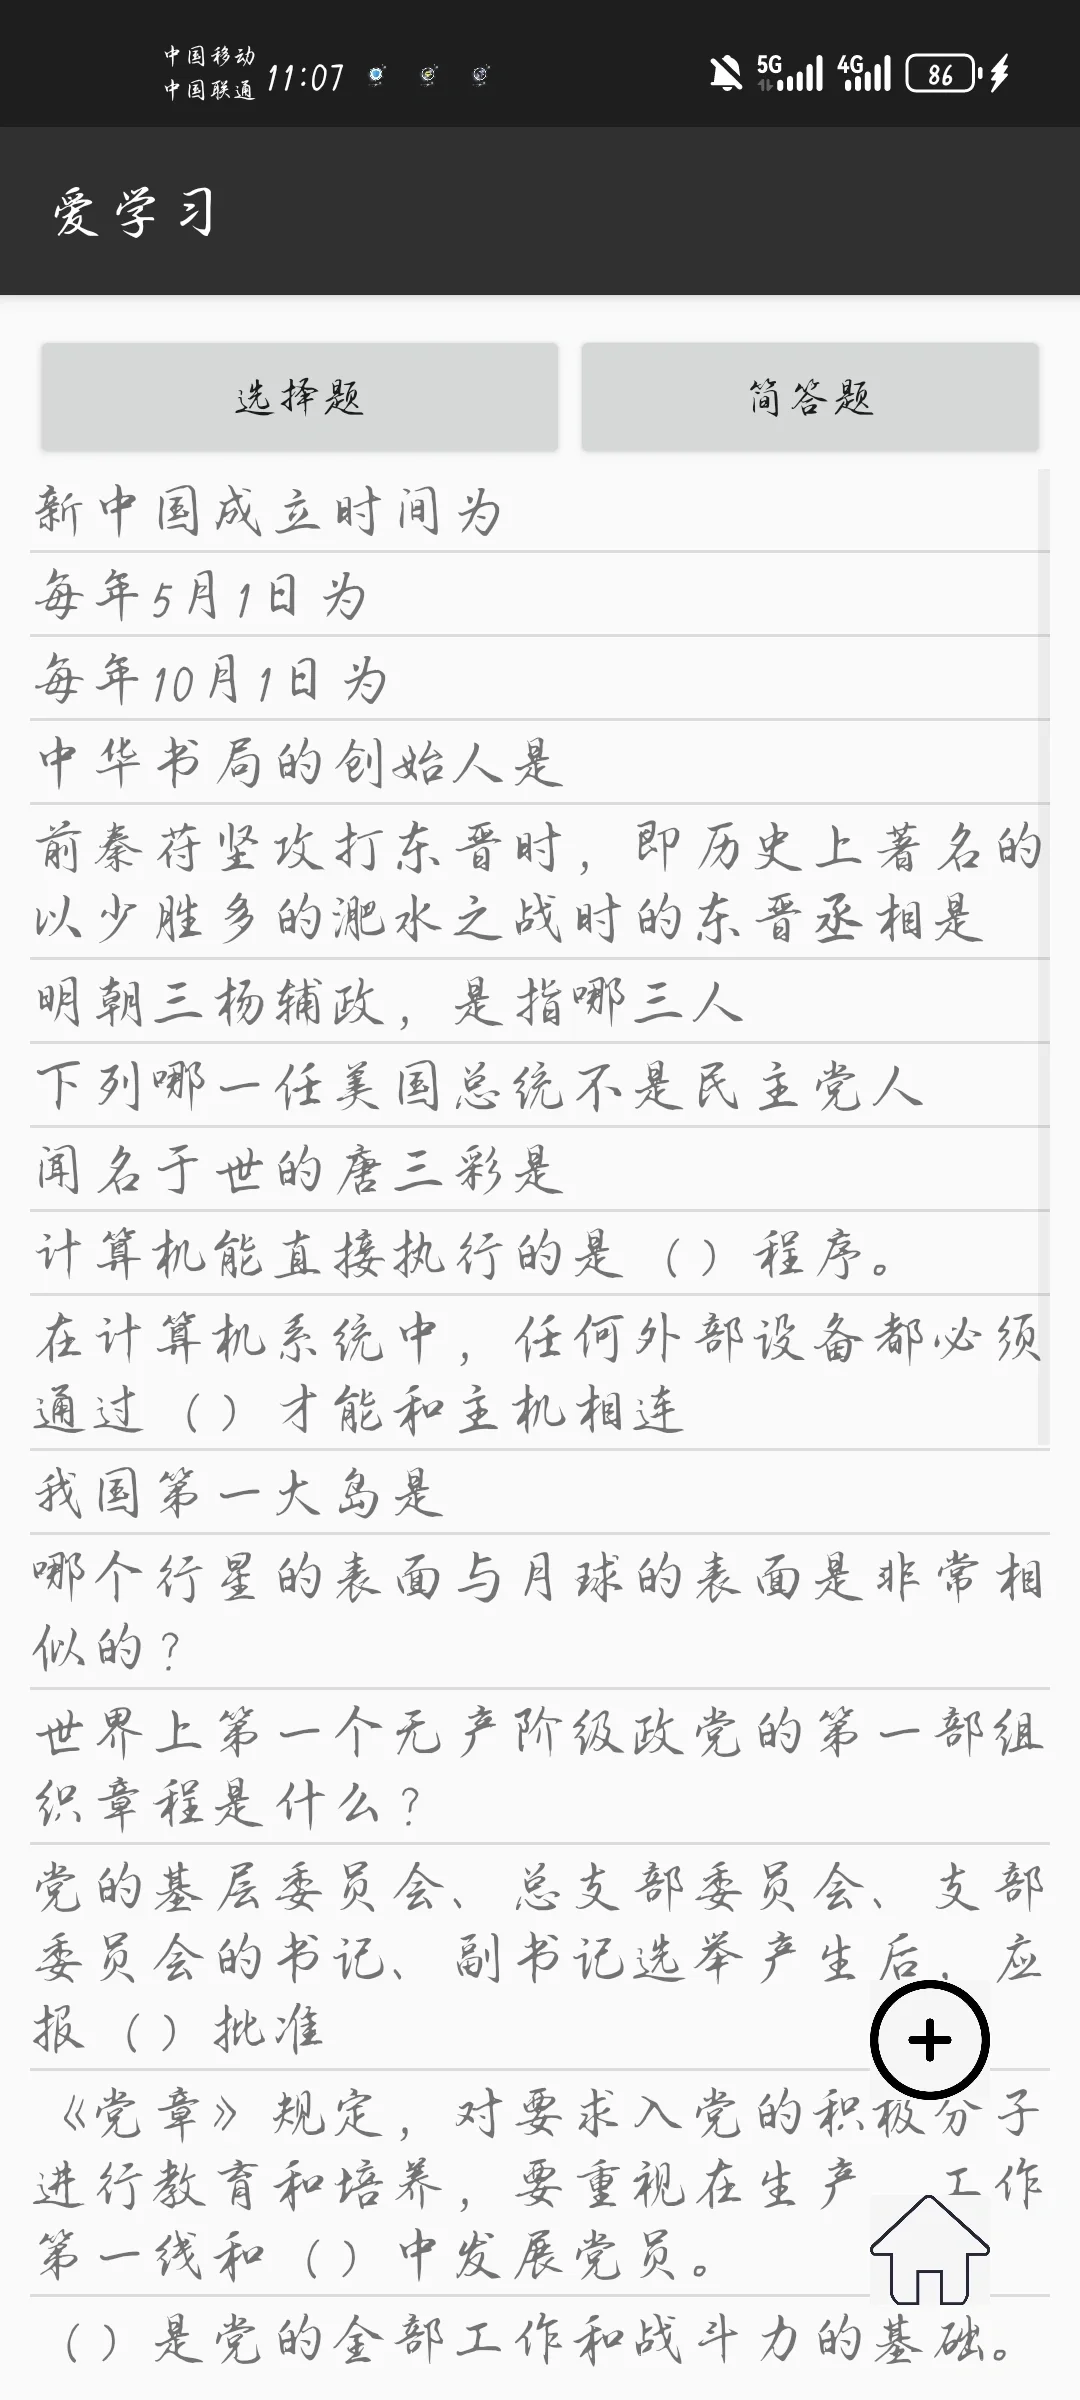 中国移动
中国联通
11:07
5G
4G
86
爱学习
选择题
简答题
新中国成立时间为
每年5月1日为
每年10月1日为
中华书局的创始人是
前秦苻坚攻打东晋时，即历史上著名的
以少胜多的淝水之战时的东晋丞相是
明朝三杨辅政，是指哪三人
下列哪一任美国总统不是民主党人
闻名于世的唐三彩是
计算机能直接执行的是（）程序。
在计算机系统中，任何外部设备都必须
通过（）才能和主机相连
我国第一大岛是
哪个行星的表面与月球的表面是非常相
似的？
世界上第一个无产阶级政党的第一部组
织章程是什么？
党的基层委员会、总支部委员会、支部
委员会的书记、副书记选举产生后，应
报（）批准
《党章》规定，对要求入党的积极分子
进行教育和培养，要重视在生产 工作
第一线和（）中发展党员。
（）是党的全部工作和战斗力的基础。